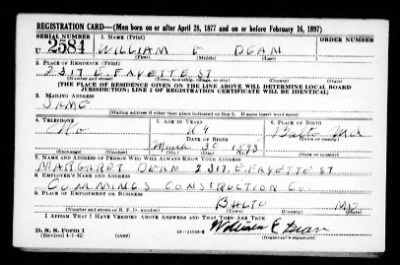 REGISTRATION CARD—(Men born on or after April 28, 1877 and on or before February 16, 1897)
SERIAL NUMBER 1. NAME (Print) ORDER NUMBER
U 2584 WILLIAM E DEAN
(First) (Middle) (Last)
2. PLACE OF RESIDENCE (Print)
2317 E. FAYETTE ST
(Number and street) (Town, township, village, or city) (County) (State)
[THE PLACE OF RESIDENCE GIVEN ON THE LINE ABOVE WILL DETERMINE LOCAL BOARD
JURISDICTION; LINE 2 OF REGISTRATION CERTIFICATE WILL BE IDENTICAL]
3. MAILING ADDRESS
SAME
(Mailing address if other than place indicated on line 2. If same insert word same)
4. TELEPHONE 5. AGE IN YEARS 6. PLACE OF BIRTH
No 49 Balto Md
DATE OF BIRTH
March 30 1893
(Exchange) (Number) (Mo.) (Day) (Yr.) (State or country)
7. NAME AND ADDRESS OF PERSON WHO WILL ALWAYS KNOW YOUR ADDRESS
MARGARET DEAN 2317 E. FAYETTE ST
8. EMPLOYER'S NAME AND ADDRESS
CUMMINGS CONSTRUCTION CO.
9. PLACE OF EMPLOYMENT OR BUSINESS
BALTO MD
(Number and street or R. F. D. number) (Town) (County) (State)
I AFFIRM THAT I HAVE VERIFIED ABOVE ANSWERS AND THAT THEY ARE TRUE.
D. S. S. Form 1 William E Dean
(Revised 4-1-42) (over) (Registrant's signature)